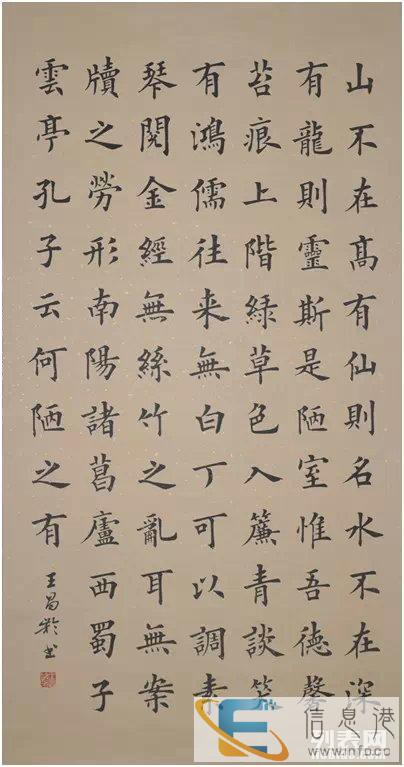 山不在髙有仙則名水不在深
有龍則靈斯是陋室惟吾德馨
苔痕上階綠草色入簾青談笑
有鴻儒往来無白丁可以調素
琴閱金經無絲竹之亂耳無案
牘之勞形南陽諸葛廬西蜀子
雲亭孔子云何陋之有
王昌龄书
信息港
列表网